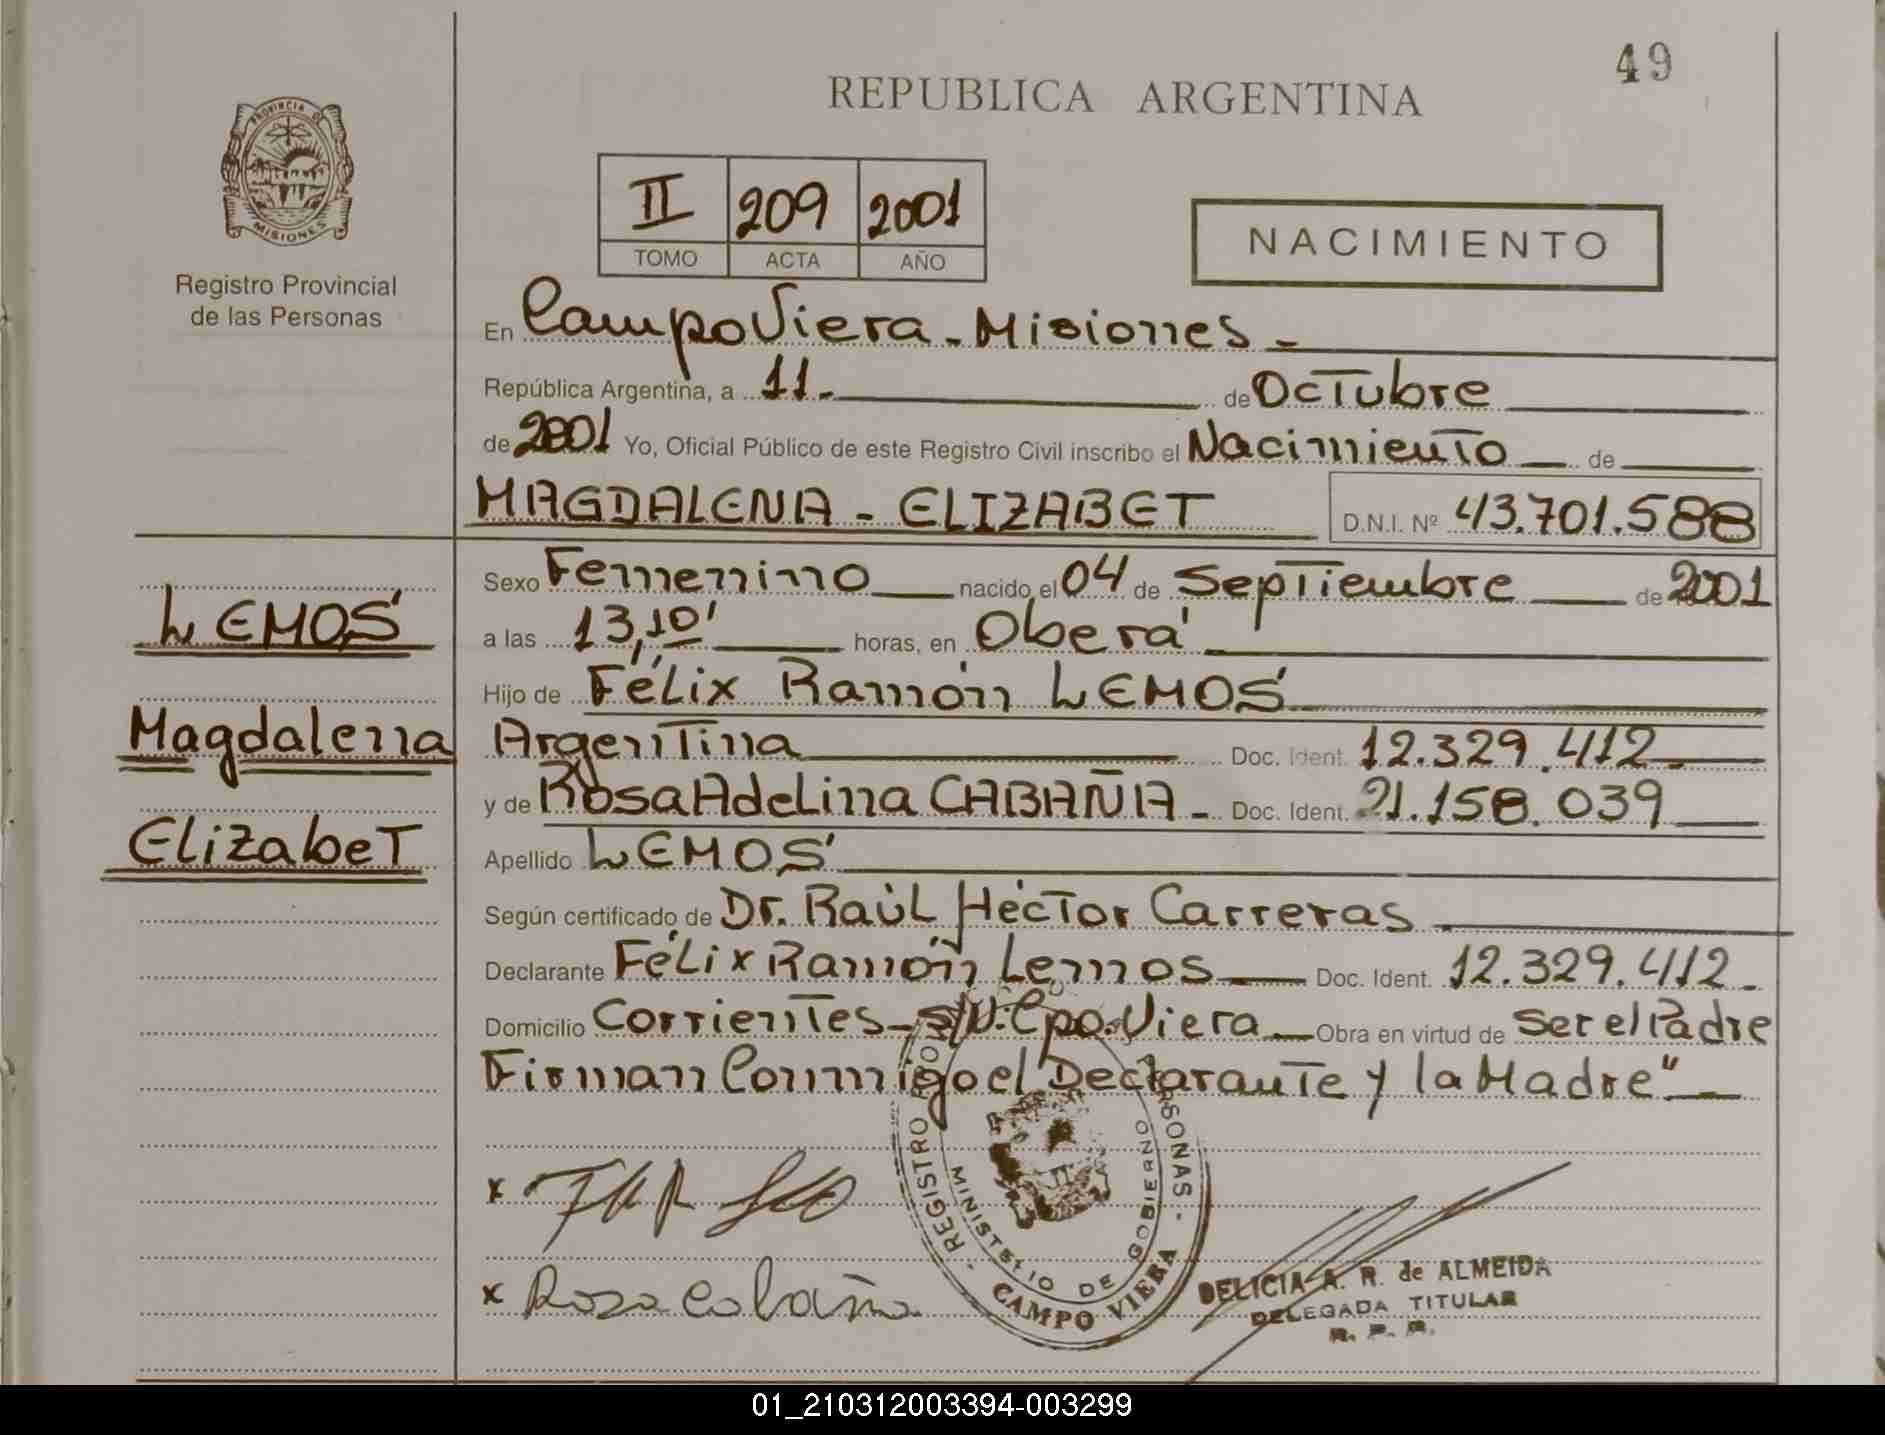 49
REPUBLICA ARGENTINA
PROVINCIA DE
MISIONES
Registro Provincial
de las Personas
II 209 2001
TOMO ACTA AÑO
NACIMIENTO
En Campo Viera - Misiones -
República Argentina, a 11 - de Octubre
de 2001 Yo, Oficial Público de este Registro Civil inscribo el Nacimiento de
MAGDALENA - ELIZABET D.N.I. Nº 43.701.588
Sexo Femenino nacido el 04 de Septiembre de 2001
a las 13,10' horas, en Oberá
Hijo de Félix Ramón LEMOS
Argentina Doc. Ident. 12.329.412 -
y de Rosa Adelina CABAÑA - Doc. Ident. 21.158.039
Apellido LEMOS
Según certificado de Dr. Raúl Héctor Carreras
Declarante Félix Ramón Lemos Doc. Ident. 12.329.412 -
Domicilio Corrientes - S/N. Cpo. Viera Obra en virtud de Ser el Padre
Firman Conmigo el Declarante y la Madre"
LEMOS
Magdalena
Elizabet
x
x Rosa Cabaña
REGISTRO PERSONAS -
MINISTERIO DE GOBIERNO
CAMPO VIERA
DELICIA A. R. de ALMEIDA
DELEGADA TITULAR
R. P. P.
01_210312003394-003299